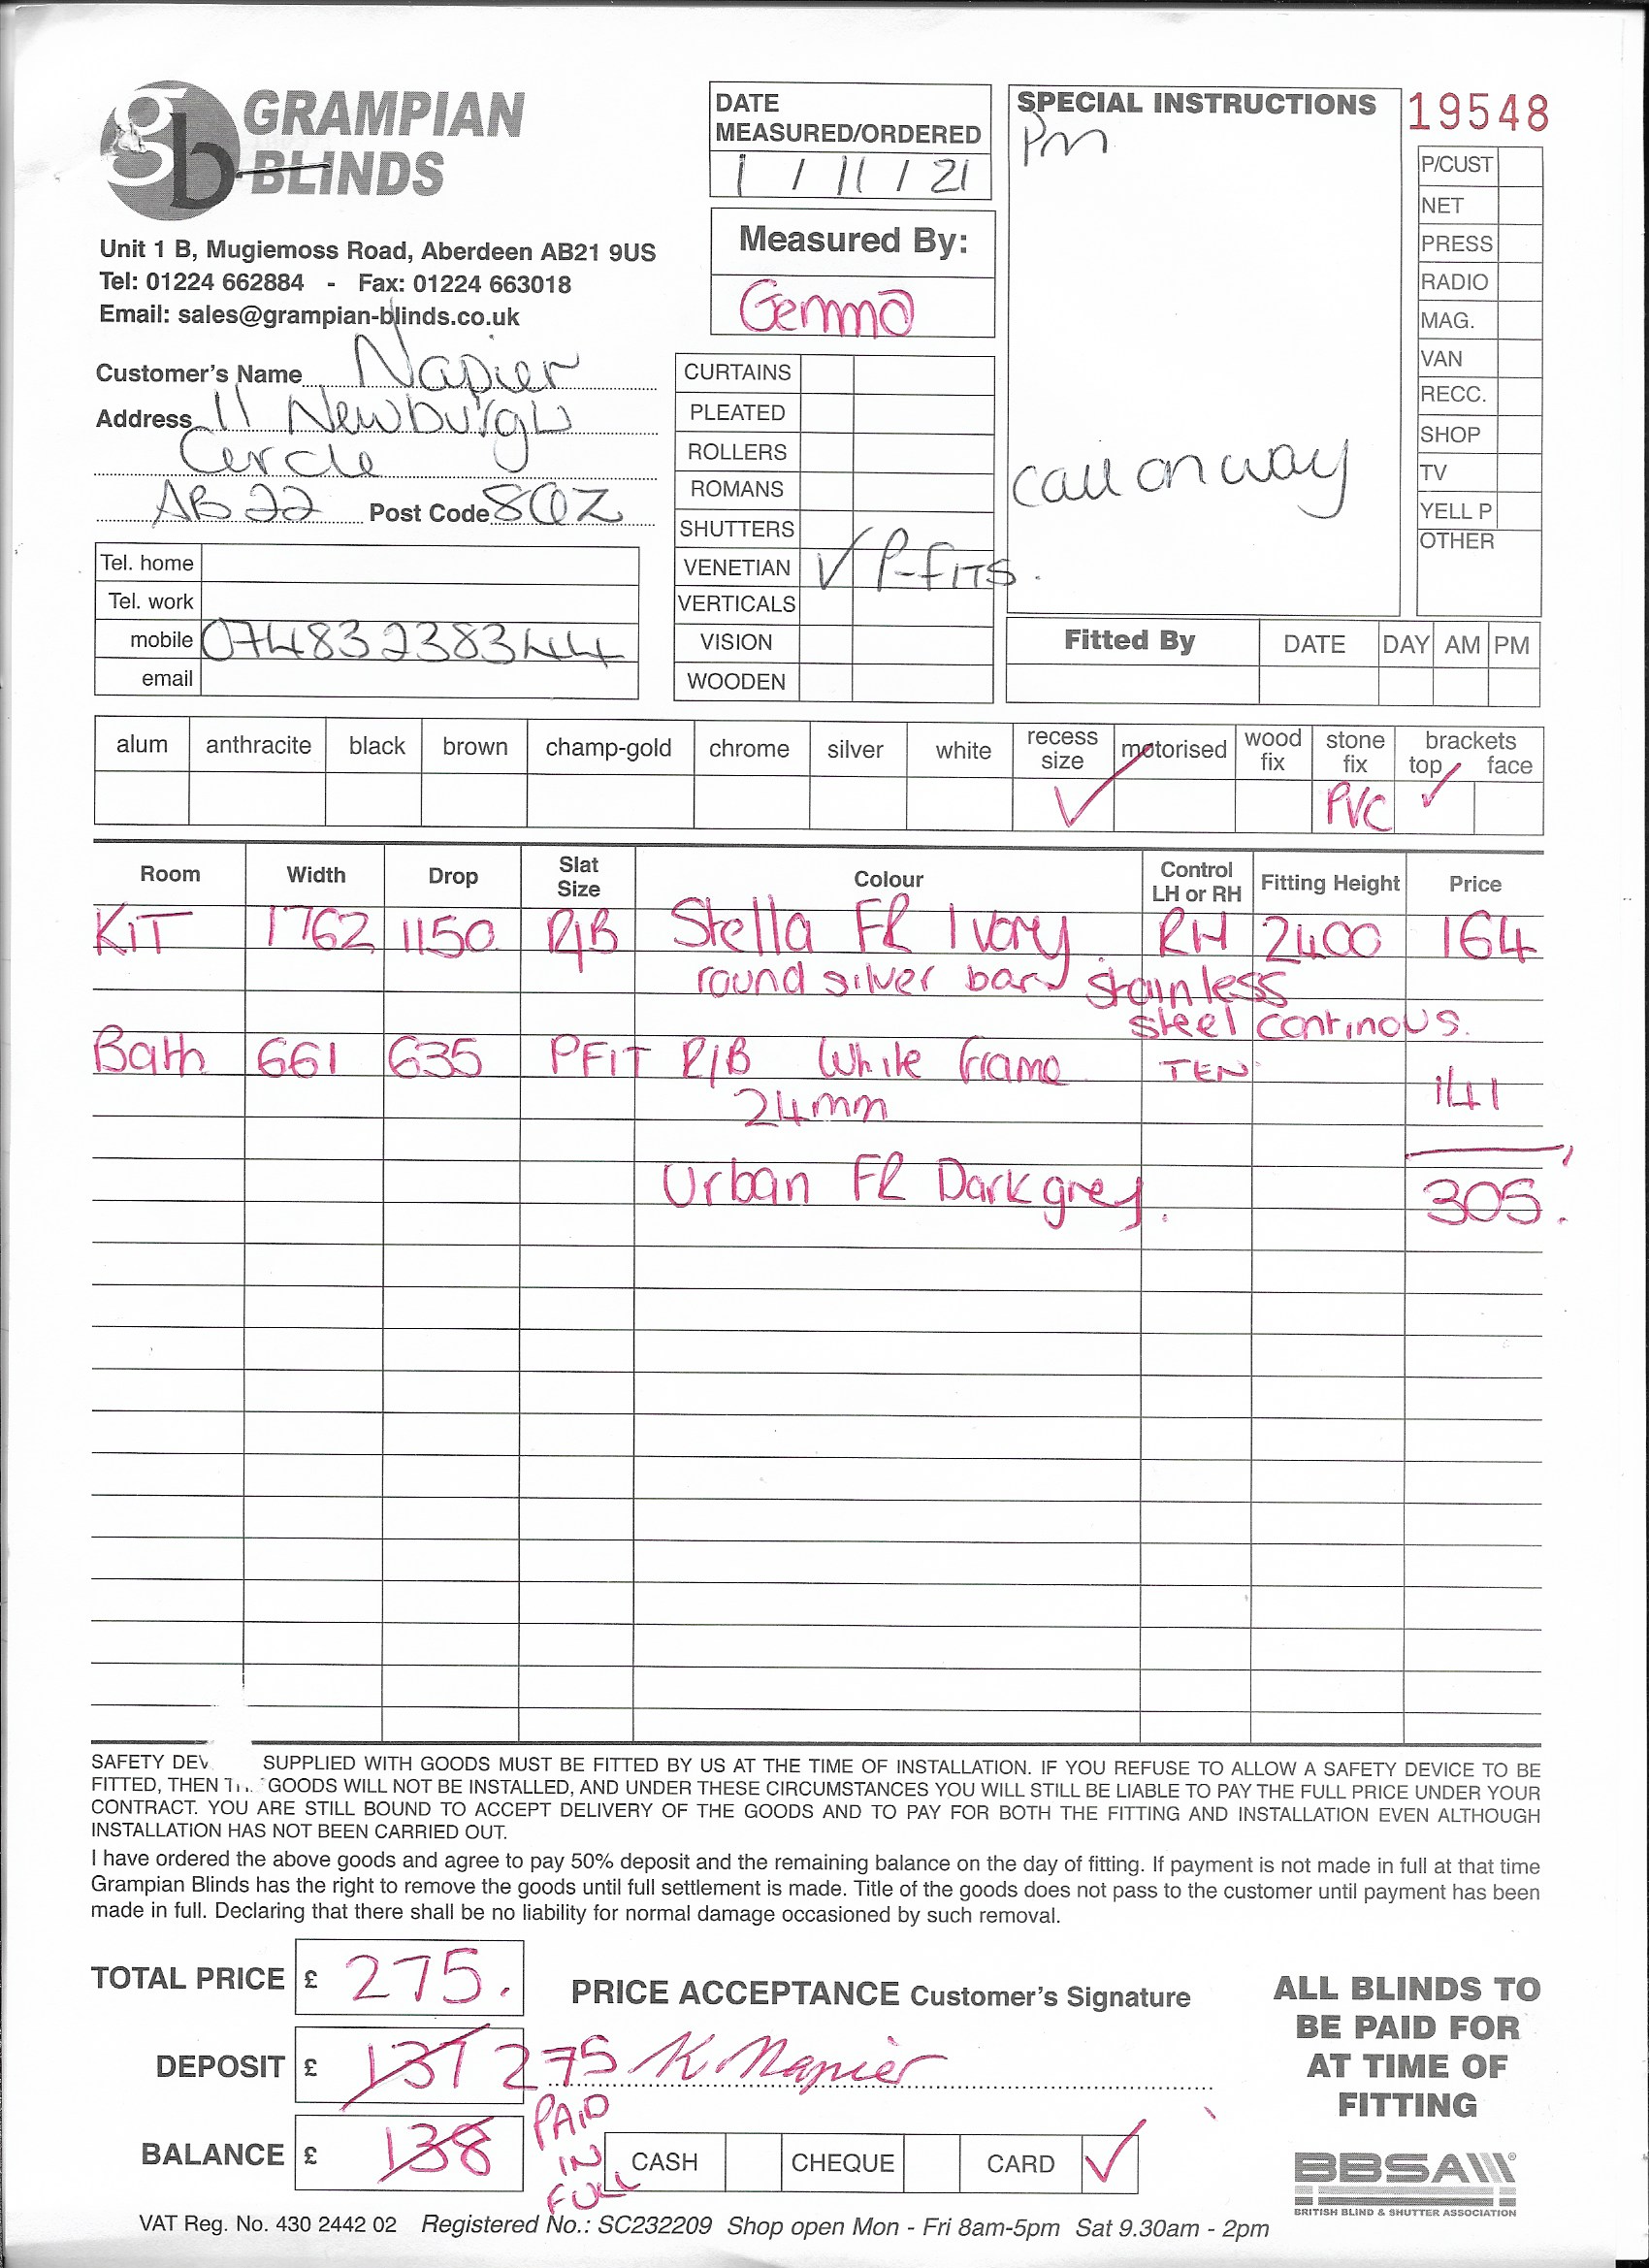 GRAMPIAN
BLINDS
Unit 1 B, Mugiemoss Road, Aberdeen AB21 9US
Tel: 01224 662884 - Fax: 01224 663018
Email: sales@grampian-blinds.co.uk
Customer's Name Napier
Address 11 Newburgh
Circle
AB22 Post Code 8QZ
Tel. home
Tel. work
mobile 07483238344
email
DATE
MEASURED/ORDERED
1 / 11 / 21
Measured By:
Gemma
CURTAINS
PLEATED
ROLLERS
ROMANS
SHUTTERS
VENETIAN ✓ P-FITS.
VERTICALS
VISION
WOODEN
SPECIAL INSTRUCTIONS
Pm
call on way
19548
P/CUST
NET
PRESS
RADIO
MAG.
VAN
RECC.
SHOP
TV
YELL P
OTHER
Fitted By DATE DAY AM PM
alum anthracite black brown champ-gold chrome silver white recess size motorised wood fix stone fix brackets top face
✓ PVC ✓
Room Width Drop Slat Size Colour Control LH or RH Fitting Height Price
KIT 1762 1150 R/B Stella FR Ivory RH 2400 164
round silver bar stainless
steel continous.
Bath 661 635 PFIT R/B White frame TEN 141
24mm
Urban FR Dark grey. 305.
SAFETY DEV SUPPLIED WITH GOODS MUST BE FITTED BY US AT THE TIME OF INSTALLATION. IF YOU REFUSE TO ALLOW A SAFETY DEVICE TO BE
FITTED, THEN GOODS WILL NOT BE INSTALLED, AND UNDER THESE CIRCUMSTANCES YOU WILL STILL BE LIABLE TO PAY THE FULL PRICE UNDER YOUR
CONTRACT. YOU ARE STILL BOUND TO ACCEPT DELIVERY OF THE GOODS AND TO PAY FOR BOTH THE FITTING AND INSTALLATION EVEN ALTHOUGH
INSTALLATION HAS NOT BEEN CARRIED OUT.
I have ordered the above goods and agree to pay 50% deposit and the remaining balance on the day of fitting. If payment is not made in full at that time
Grampian Blinds has the right to remove the goods until full settlement is made. Title of the goods does not pass to the customer until payment has been
made in full. Declaring that there shall be no liability for normal damage occasioned by such removal.
TOTAL PRICE £ 275.
DEPOSIT £ 137 275
BALANCE £ 138
PAID
IN
FULL
PRICE ACCEPTANCE Customer's Signature
K Napier
CASH CHEQUE CARD ✓
ALL BLINDS TO
BE PAID FOR
AT TIME OF
FITTING
BBSA
BRITISH BLIND & SHUTTER ASSOCIATION
VAT Reg. No. 430 2442 02 Registered No.: SC232209 Shop open Mon - Fri 8am-5pm Sat 9.30am - 2pm